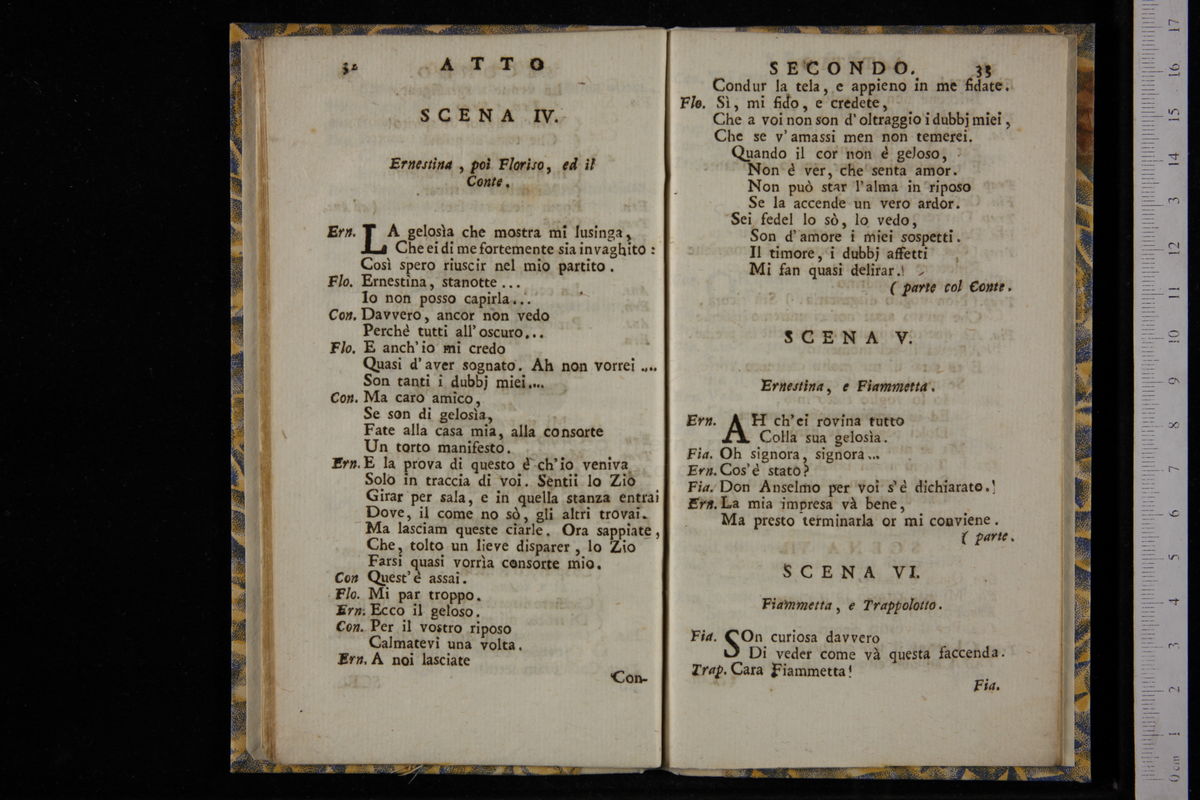 32 ATTO
SCENA IV.
Ernestina, poi Floriso, ed il
Conte.
Ern. LA gelosìa che mostra mi lusinga,
Che ei di me fortemente sia invaghito:
Così spero riuscir nel mio partito.
Flo. Ernestina, stanotte...
Io non posso capirla...
Con. Davvero, ancor non vedo
Perchè tutti all'oscuro...
Flo. E anch'io mi credo
Quasi d'aver sognato. Ah non vorrei ....
Son tanti i dubbj miei....
Con. Ma caro amico,
Se son di gelosìa,
Fate alla casa mia, alla consorte
Un torto manifesto.
Ern. E la prova di questo è ch'io veniva
Solo in traccia di voi. Sentii lo Zio
Girar per sala, e in quella stanza entrai
Dove, il come no sò, gli altri trovai.
Ma lasciam queste ciarle. Ora sappiate,
Che, tolto un lieve disparer, lo Zio
Farsi quasi vorrìa consorte mio.
Con Quest'è assai.
Flo. Mi par troppo.
Ern. Ecco il geloso.
Con. Per il vostro riposo
Calmatevi una volta.
Ern. A noi lasciate
Con-
SECONDO. 33
Condur la tela, e appieno in me fidate.
Flo. Sì, mi fido, e credete,
Che a voi non son d'oltraggio i dubbj miei,
Che se v'amassi men non temerei.
Quando il cor non è geloso,
Non è ver, che senta amor.
Non può star l'alma in riposo
Se la accende un vero ardor.
Sei fedel lo sò, lo vedo,
Son d'amore i miei sospetti.
Il timore, i dubbj affetti
Mi fan quasi delirar.
( parte col Conte.
SCENA V.
Ernestina, e Fiammetta.
Ern. AH ch'ei rovina tutto
Colla sua gelosìa.
Fia. Oh signora, signora...
Ern. Cos'è stato?
Fia. Don Anselmo per voi s'è dichiarato.
Ern. La mia impresa và bene,
Ma presto terminarla or mi conviene.
( parte.
SCENA VI.
Fiammetta, e Trappolotto.
Fia. SOn curiosa davvero
Di veder come và questa faccenda.
Trap. Cara Fiammetta!
Fia.
0 cm 1 2 3 4 5 6 7 8 9 10 11 12 13 14 15 16 17